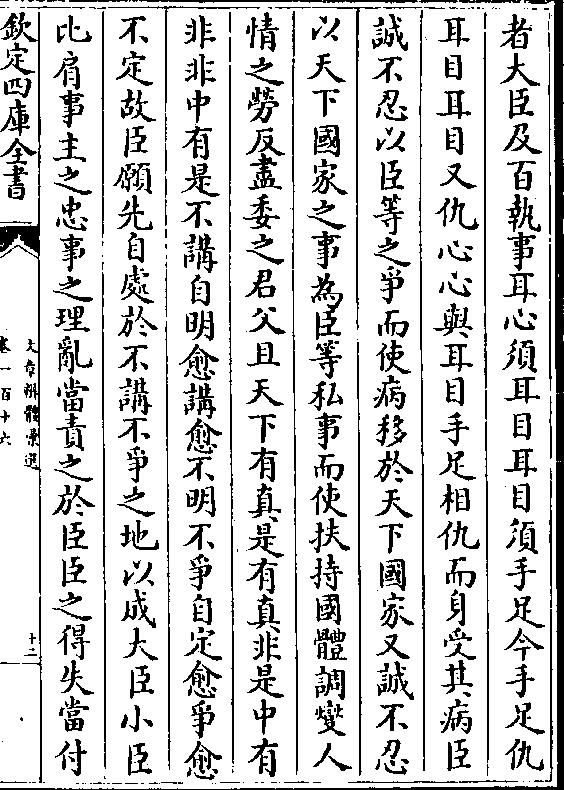 者大臣及百執事耳心須耳目耳目須手足今手足仇
耳目耳目又仇心心與耳目手足相仇而身受其病臣
誠不忍以臣等之爭而使病移於天下國家又誠不忍
以天下國家之事為臣等私事而使扶持國體調燮人
情之勞反盡委之君父且天下有真是有真非是中有
非非中有是不講自明愈講愈不明不爭自定愈爭愈
不定故臣願先自處於不講不爭之地以成大臣小臣
比肩事主之忠事之理亂當責之於臣臣之得失當付
欽定四庫全書
文章辨體彙選
卷一百十六
十二